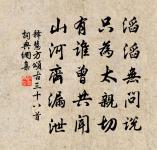 滔滔無問說
只為太親切
有誰曾共聞
山河齊漏泄
釋慧方頌古三十八首
詞典網集